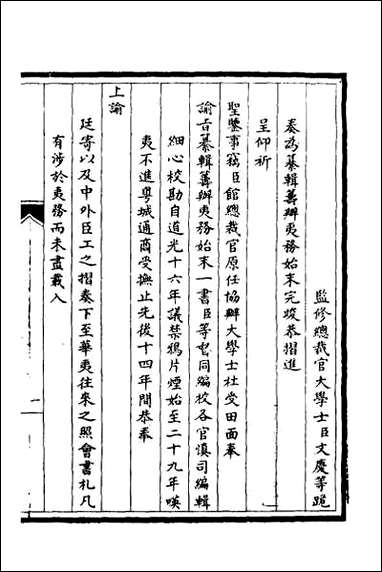 監修總裁官大學士臣文慶等跪
奏為纂輯籌辦夷務始末完竣恭摺進
呈仰祈
聖鑒事竊臣館總裁官原任協辦大學士杜受田面奉
諭旨纂輯籌辦夷務始末一書臣等督同編校各官慎司編輯
細心校勘自道光十六年議禁鴉片煙始至二十九年㗸
夷不進粵城通商受撫止先後十四年間恭奉
上諭
廷寄以及中外臣工之摺奏下至華夷往來之照會書札凡
有涉於夷務而未盡載入
一